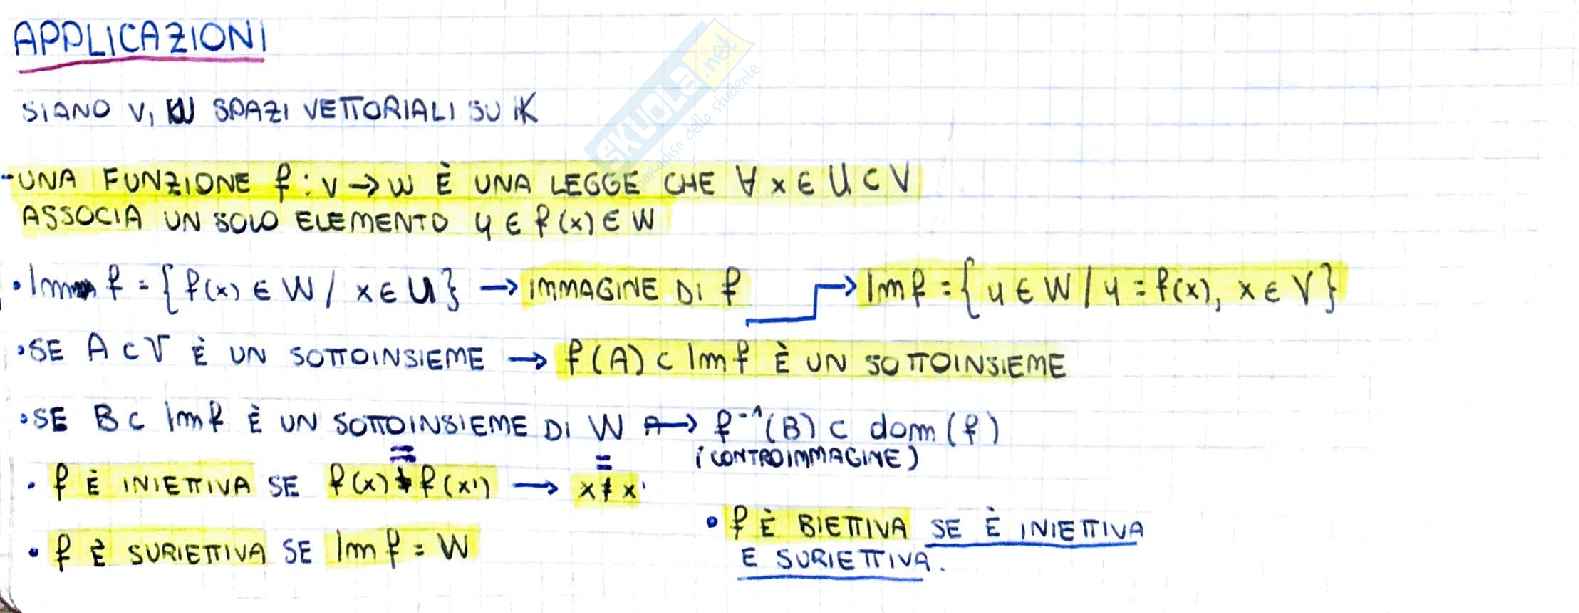 APPLICAZIONI
SIANO V, W SPAZI VETTORIALI SU K
SKUOLA.net
- UNA FUNZIONE f : V → W È UNA LEGGE CHE ∀ x ∈ U ⊂ V
ASSOCIA UN SOLO ELEMENTO y ∈ f(x) ∈ W
• Im f = { f(x) ∈ W / x ∈ U } → IMMAGINE DI f → Im f = { y ∈ W / y = f(x), x ∈ V }
• SE A ⊂ V È UN SOTTOINSIEME → f(A) ⊂ Im f È UN SOTTOINSIEME
• SE B ⊂ Im f È UN SOTTOINSIEME DI W → f⁻¹(B) ⊂ dom(f)
(CONTROIMMAGINE)
= =
• f È INIETTIVA SE f(x) ≠ f(x') → x ≠ x'
• f È SURIETTIVA SE Im f = W
• f È BIETTIVA SE È INIETTIVA
E SURIETTIVA.